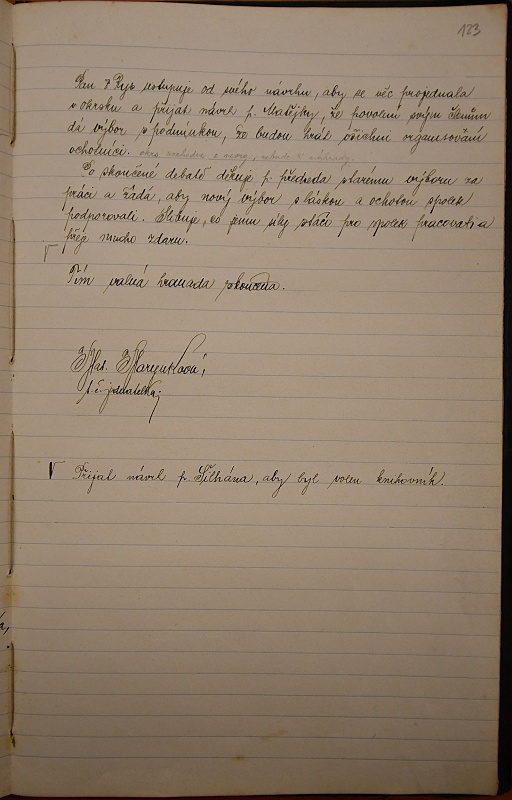 123
Pan Ryb ustupuje od svého návrhu, aby se věc projednala
v okrsku a přijat návrh p. Matějky, že povolení svým členům
dá výbor s podmínkou, že budou hrát všichni organisovaní
ochotníci.
Po skončené debatě děkuje p. předseda starému výboru za
práci a žádá, aby nový výbor s láskou a ochotou spolek
podporovali. Slibuje, co jemu síly stačí pro spolek pracovati a
přeje mnoho zdaru.
Tím valná hromada skončena.
t. č. jednatelka
V Přijat návrh p. Šilhána, aby byl volen knihovník.